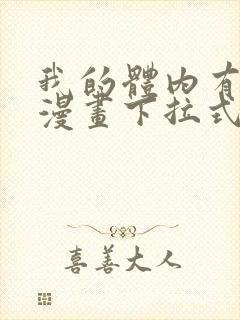 我的體內有
漫畫下拉式
喜善大人